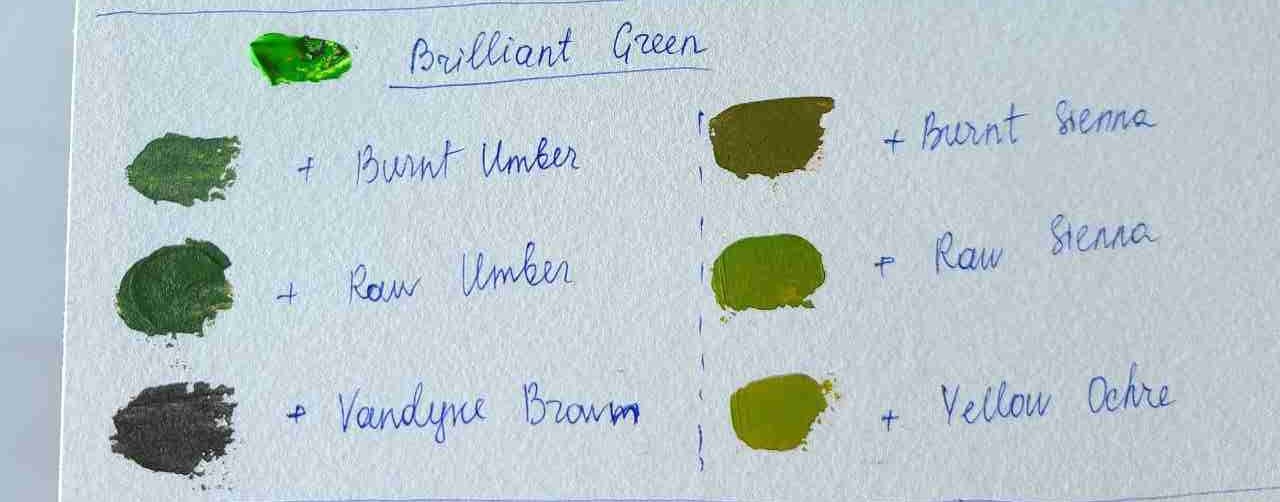 Brilliant Green
+ Burnt Umber
+ Raw Umber
+ Vandyke Brown
+ Burnt Sienna
+ Raw Sienna
+ Yellow Ochre